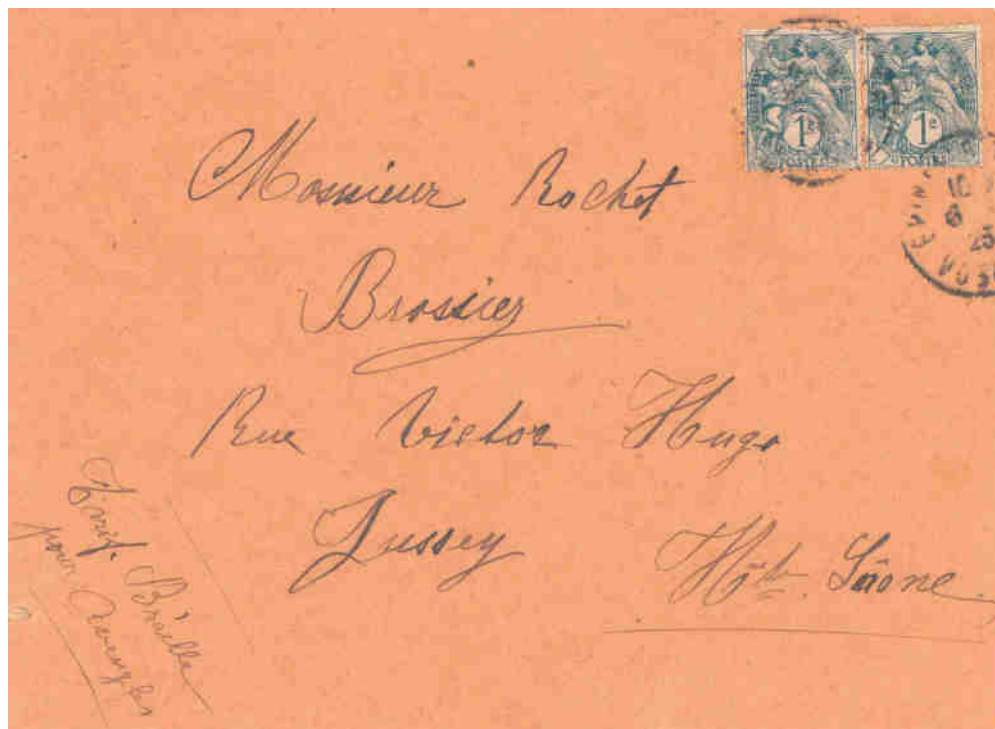 1c 1c
POSTES POSTES
10
6
25
Monsieur Rochet
Brossier
Rue Victor Hugo
Jussey Hte Saône
Braille
pour Aveugles